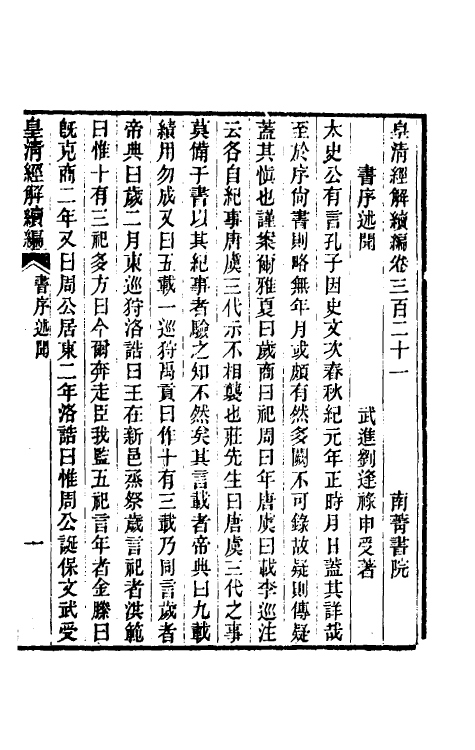 皇清經解續編卷三百二十一　南菁書院
書序述聞　武進劉逢祿申受著
太史公有言孔子因史文次春秋紀元年正時月日蓋其詳哉
至於序尙書則略無年月或頗有然多闕不可錄故疑則傳疑
蓋其愼也謹案爾雅夏曰歲商曰祀周曰年唐虞曰載李巡注
云各自紀事唐虞三代示不相襲也莊先生曰唐虞三代之事
莫備于書以其紀事者驗之知不然矣其言載者帝典曰九載
績用勿成又曰五載一巡狩禹貢曰作十有三載乃同言歲者
帝典曰歲二月東巡狩洛誥曰王在新邑烝祭歲言祀者洪範
曰惟十有三祀多方曰今爾奔走臣我監五祀言年者金縢曰
旣克商二年又曰周公居東二年洛誥曰惟周公誕保文武受
皇清經解續編　書序述聞　一